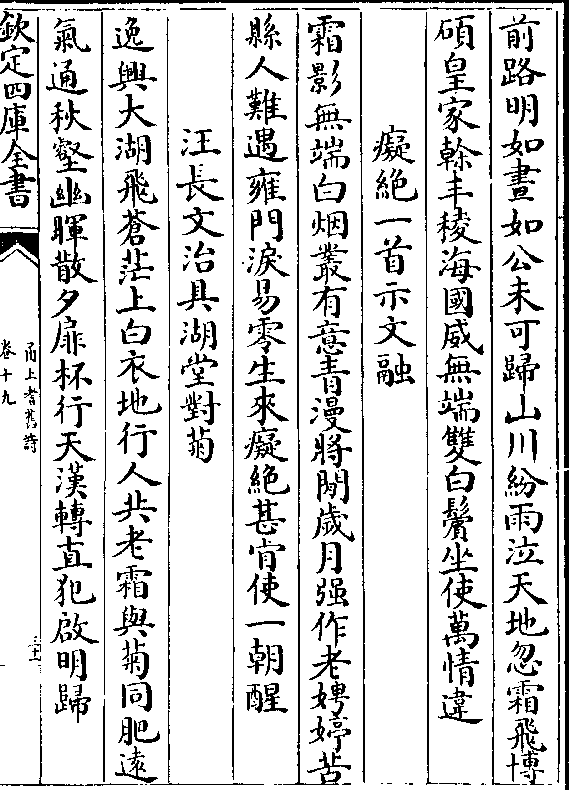 前路明如晝如公未可歸山川紛雨泣天地忽霜飛博
碩皇家榦丰稜海國威無端雙白鬢坐使萬情違
癡絕一首示文融
霜影無端白烟叢有意青漫將閒歲月强作老娉婷苦
縣人難遇雍門淚易零生來癡絕甚肯使一朝醒
汪長文治具湖堂對菊
逸興大湖飛蒼茫上白衣地行人共老霜與菊同肥遠
氣通秋壑幽暉散夕扉杯行天漢轉直犯啟明歸
欽定四庫全書
甬上耆舊詩
卷十九